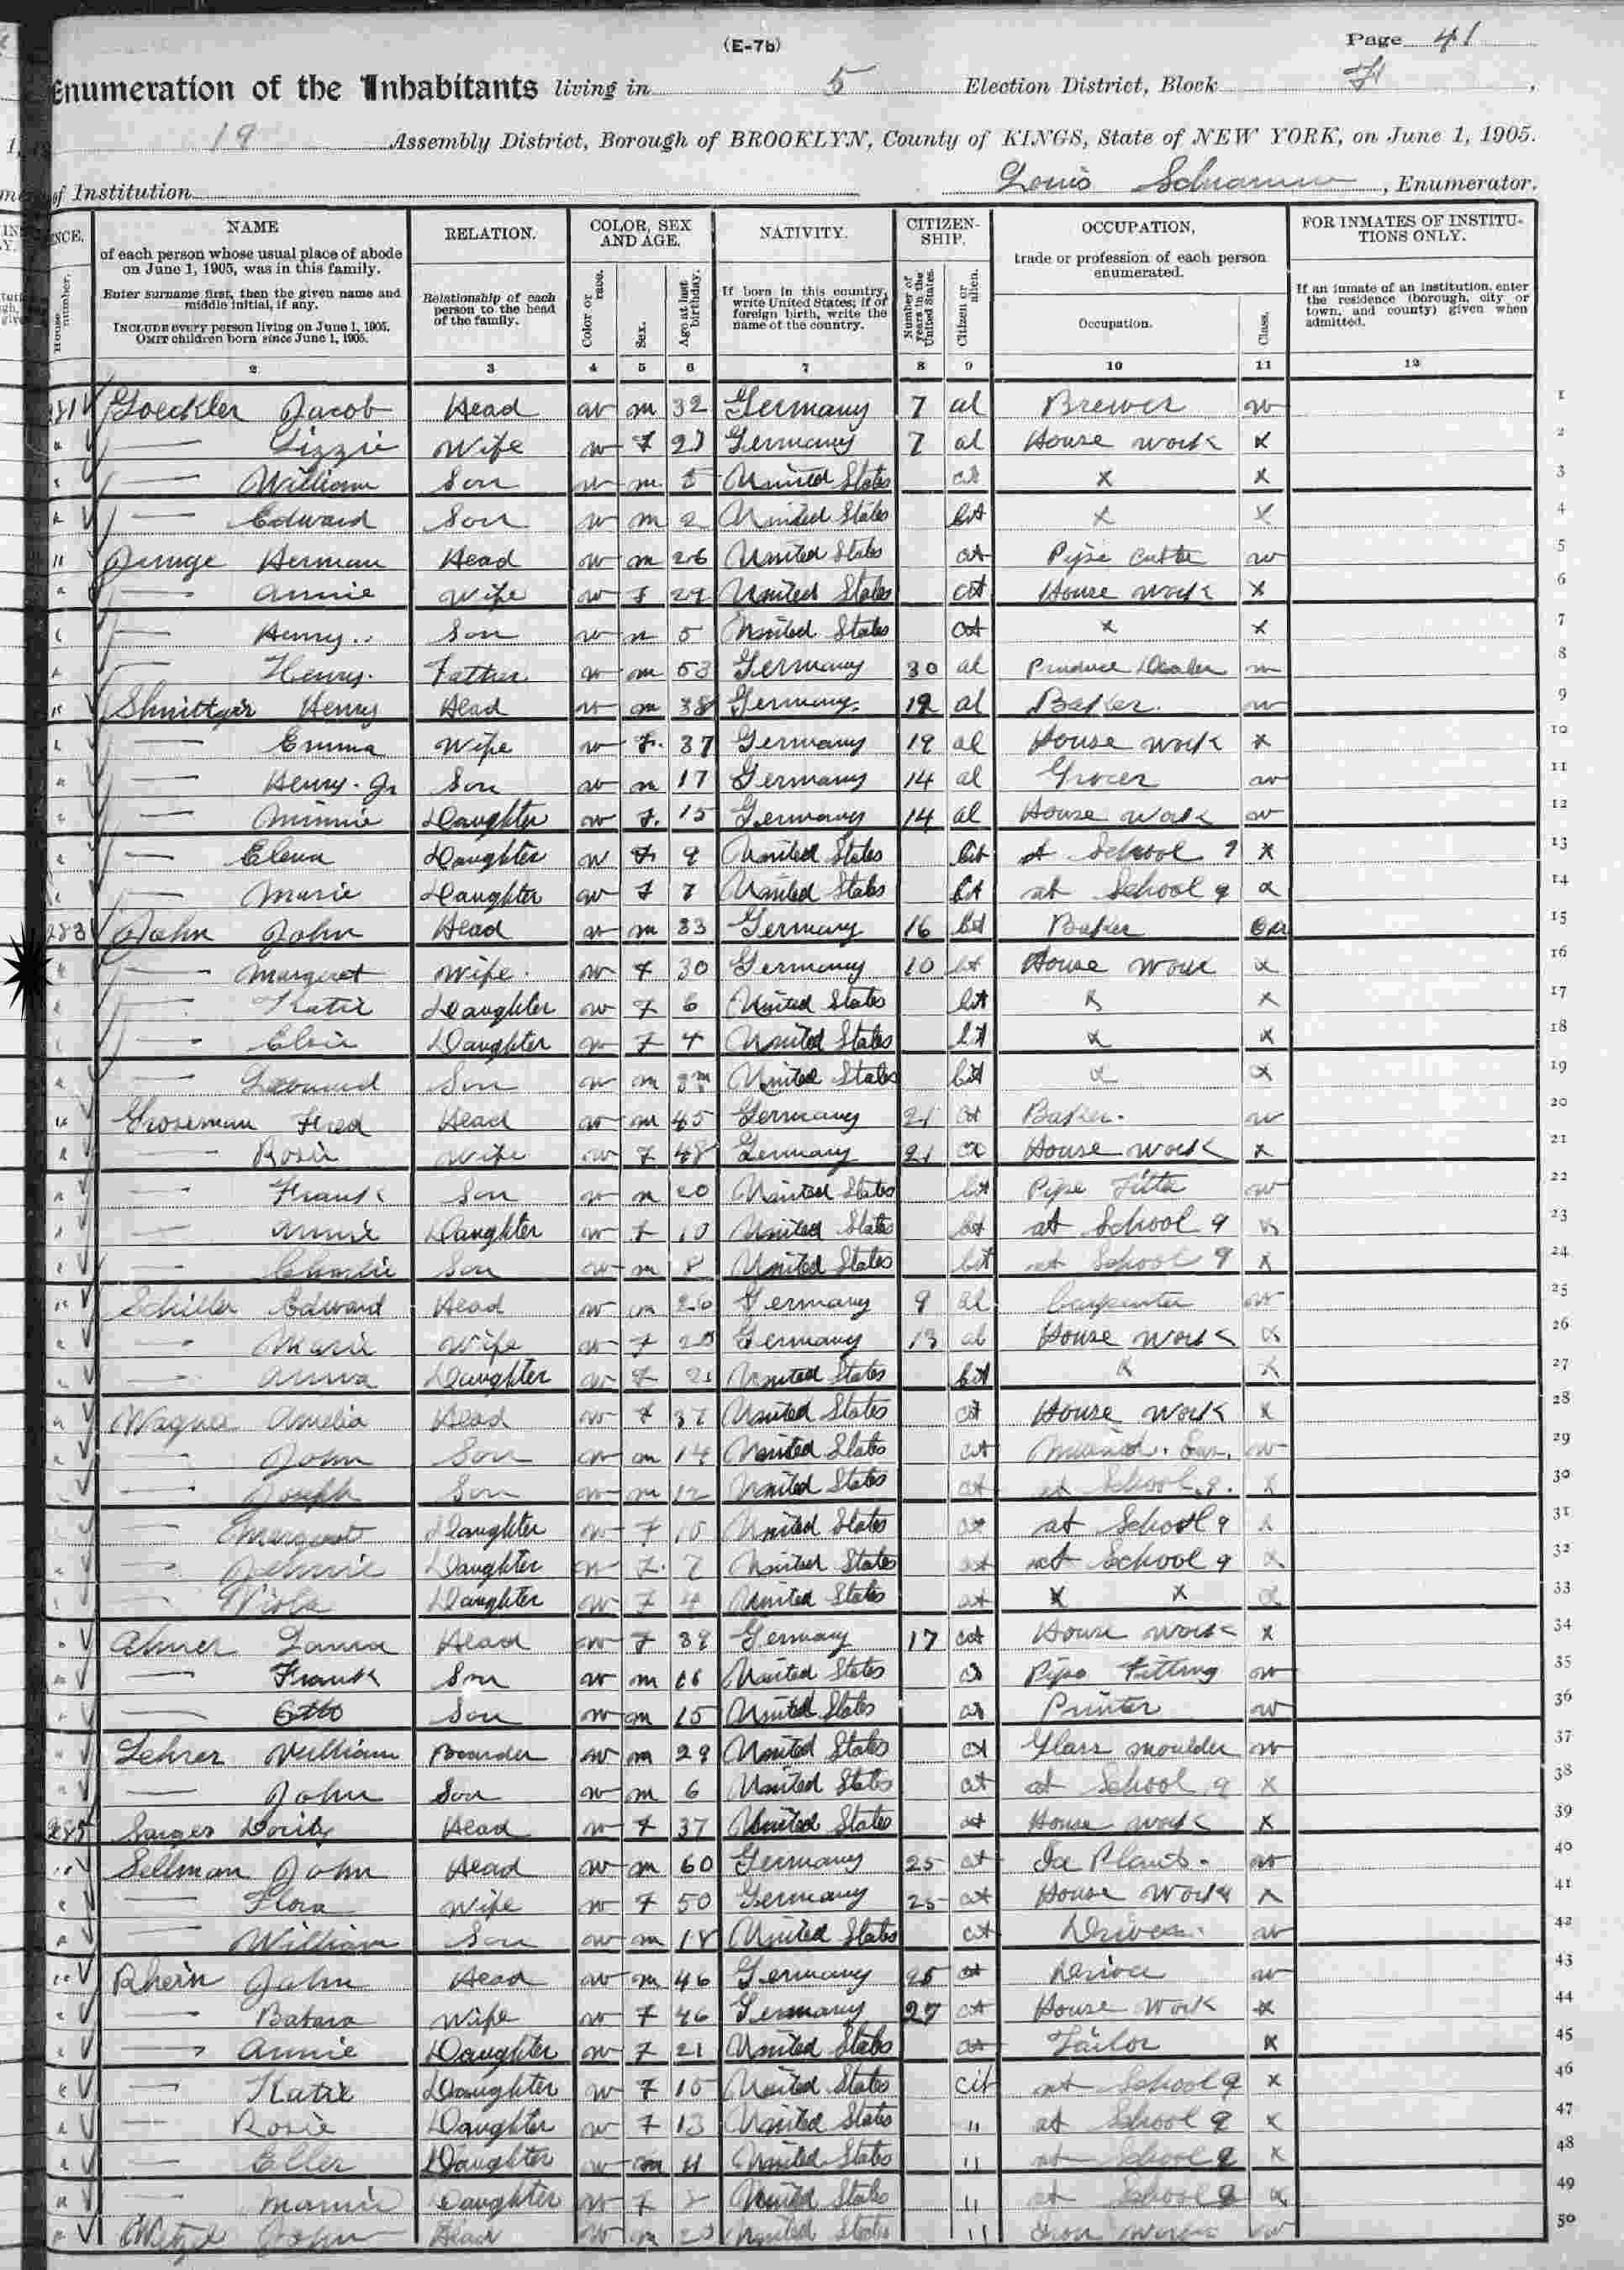 (E-7b)
Page 41
Enumeration of the Inhabitants living in 5 Election District, Block
19 Assembly District, Borough of BROOKLYN, County of KINGS, State of NEW YORK, on June 1, 1905.
of Institution Louis Schramm, Enumerator.
NAME
of each person whose usual place of abode on June 1, 1905, was in this family.
Enter surname first, then the given name and middle initial, if any.
INCLUDE every person living on June 1, 1905. OMIT children born since June 1, 1905.
RELATION.
Relationship of each person to the head of the family.
COLOR, SEX AND AGE.
Color or race.
Sex.
Age at last birthday.
NATIVITY.
If born in this country, write United States; if of foreign birth, write the name of the country.
CITIZEN-SHIP.
Number of years in the United States.
Citizen or alien.
OCCUPATION,
trade or profession of each person enumerated.
Occupation.
Class.
FOR INMATES OF INSTITUTIONS ONLY.
If an inmate of an institution, enter the residence (borough, city or town, and county) given when admitted.
House number.
2 3 4 5 6 7 8 9 10 11 12
281 Goeckler Jacob Head w m 32 Germany 7 al Brewer w 1
" — Lizzie Wife w F Germany 7 al House work x 2
" — William Son w m 5 United States cit x x 3
" — Edward Son w m 2 United States cit x x 4
" Junge Herman Head w m 26 United States cit Pipe Cutter w 5
" — Annie Wife w F United States cit House work x 6
" — Henry Son w m 5 United States cit x x 7
" — Henry. Father w m 53 Germany 30 al Produce Dealer 8
" Shnittger Henry Head w m 38 Germany 19 al Baker. w 9
" — Emma Wife w F. 37 Germany 19 al House work x 10
" — Henry. Jr Son w m 17 Germany 14 al Grocer w 11
" — Minnie Daughter w F. 15 Germany 14 al House work w 12
" — Elena Daughter w F 9 United States cit at School 9 x 13
" — Marie Daughter w F 7 United States cit at School 9 x 14
283 John John Head w m 33 Germany 16 cit Baker 15
" — Margaret Wife w F 30 Germany 10 cit House work x 16
" — Katie Daughter w F 6 United States cit x x 17
" — Elsie Daughter w F 4 United States cit x x 18
" — Son w m United States cit x x 19
" Grossman Fred Head w m 45 Germany 21 cit Baker. w 20
" — Rosie Wife w F 48 Germany 21 cit House work x 21
" — Frank Son w m 20 United States cit Pipe Fitter w 22
" — Annie Daughter w F 10 United States cit at School 9 x 23
" — Charlie Son w m 8 United States cit at School 9 x 24
" Schiller Edward Head w m 26 Germany 9 al Carpenter w 25
" — Marie Wife w F Germany 13 al House work x 26
" — Anna Daughter w F United States cit x x 27
" Wagner Amelia Head w F 37 United States cit House work x 28
" — John Son w m 14 United States cit w 29
" — Joseph Son w m 12 United States cit at School 9. x 30
" — Margaret Daughter w F 10 United States cit at School 9 x 31
" — Jennie Daughter w F. 7 United States cit at School 9 x 32
" — Viola Daughter w F 4 United States cit x x x 33
" Ahner Laura Head w F 39 Germany 17 cit House work x 34
" — Frank Son w m 16 United States cit Pipe Fitting w 35
" — Otto Son w m 15 United States cit Printer w 36
" Lehrer William Boarder w m 29 United States cit Glass moulder w 37
" — John Son w m 6 United States cit at School 9 x 38
285 Sarges Head w F 37 United States cit House work x 39
" Sellman John Head w m 60 Germany 25 cit Ice Plant. w 40
" — Flora Wife w F 50 Germany 25 cit House Work x 41
" — William Son w m 18 United States cit Driver. w 42
" Rhein John Head w m 46 Germany 25 cit Driver w 43
" — Babara Wife w F 46 Germany 27 cit House Work x 44
" — Annie Daughter w F 21 United States cit Tailor x 45
" — Katie Daughter w F 15 United States cit at School 9 x 46
" — Rosie Daughter w F 13 United States " at School 9 x 47
" — Eller Daughter w m 11 United States " at School 9 x 48
" — Mamie Daughter w F 8 United States " at School 9 x 49
" Wetzel John Head w m United States " Iron works w 50